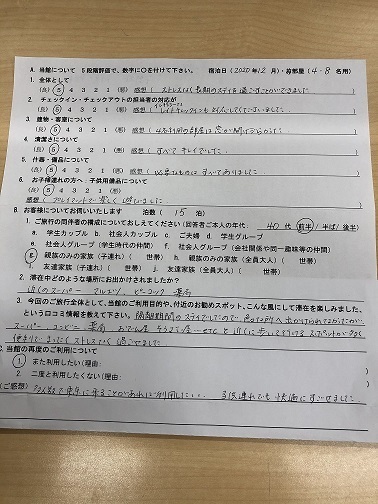 A. 当館について 5段階評価で、数字に○を付けて下さい。 宿泊日(2020年12月)・お部屋(4・8名用)
1. 全体として
(良) 5 4 3 2 1 (悪) 感想(ストレスなく長期のステイを過ごすことができました)
2. チェックイン・チェックアウトの担当者の対応が
(良) 5 4 3 2 1 (悪) 感想(レイトチェックインも してくださいました)
3. 建物・客室について
(良) 5 4 3 2 1 (悪) 感想(
4. 清潔さについて
(良) 5 4 3 2 1 (悪) 感想(すべて キレイでした)
5. 什器・備品について
(良) 5 4 3 2 1 (悪) 感想(必要なものはすべてありました)
6. お子様連れの方へ:子供用備品について
感想(プレイマットで楽しく遊んでいました)
B お客様についてお伺いいたします 泊数(15泊)
1. ご旅行の同伴者の構成についておしえてください(回答者ご本人の年代: 40代(前半/半ば/後半)
a. 学生カップル b. 社会人カップル c. ご夫婦 d. 学生グループ
e. 社会人グループ(学生時代の仲間) f. 社会人グループ(会社関係や同一趣味等の仲間)
g. 親族のみの家族(子連れ)( 世帯) h. 親族のみの家族(全員大人)( 世帯)
i. 友達家族(子連れ)( 世帯) j. 友達家族(全員大人)( 世帯)
2. 滞在中どのような場所にお出かけされましたか?
近くのスーパー ピーコック 薬局
3. 今回のご旅行全体として、当館のご利用目的や、付近のお勧めスポット、こんな風にして滞在を楽しみました、
という口コミ情報を教えて下さい。隔離期間のステイでしたので
スーパー、コンビニ 薬局 etc と近くに歩いて行けるスポットが多く
便利で、まったく ストレスなく過ごせました
C. 当館の再度のご利用について
1. また利用したい(理由:
2. 二度と利用したくない(理由:
(ご感想) 大人数で東京に来ることがあればご利用したい 子供連れでも 快適にすごせました